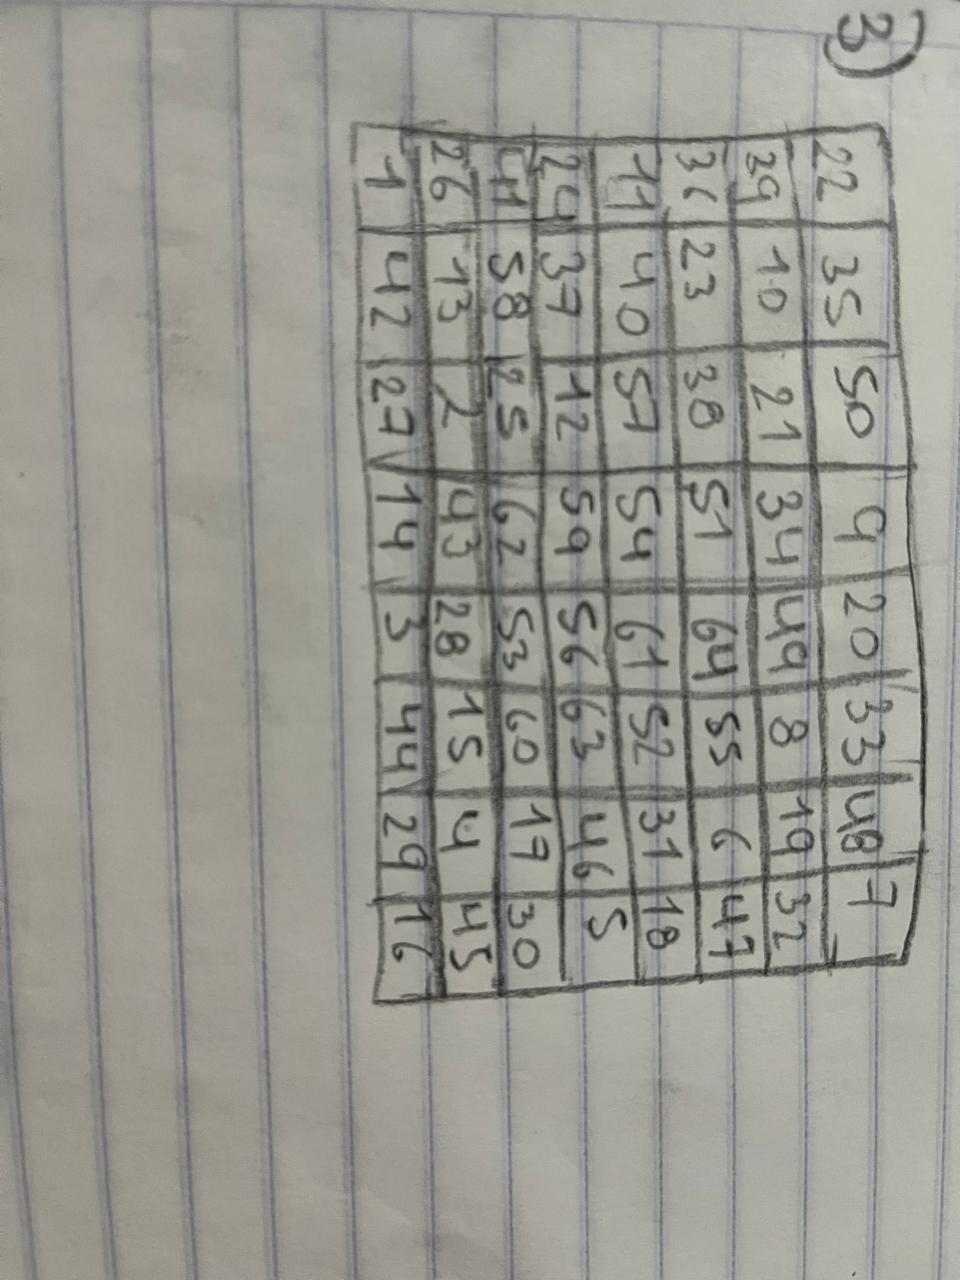 3)
22 35 50 9 20 33 48 7
39 10 21 34 49 8 19 32
36 23 38 51 64 55 6 47
11 40 57 54 61 52 31 18
24 37 12 59 56 63 46 5
41 58 25 62 53 60 17 30
26 13 2 43 28 15 4 45
1 42 27 14 3 44 29 16